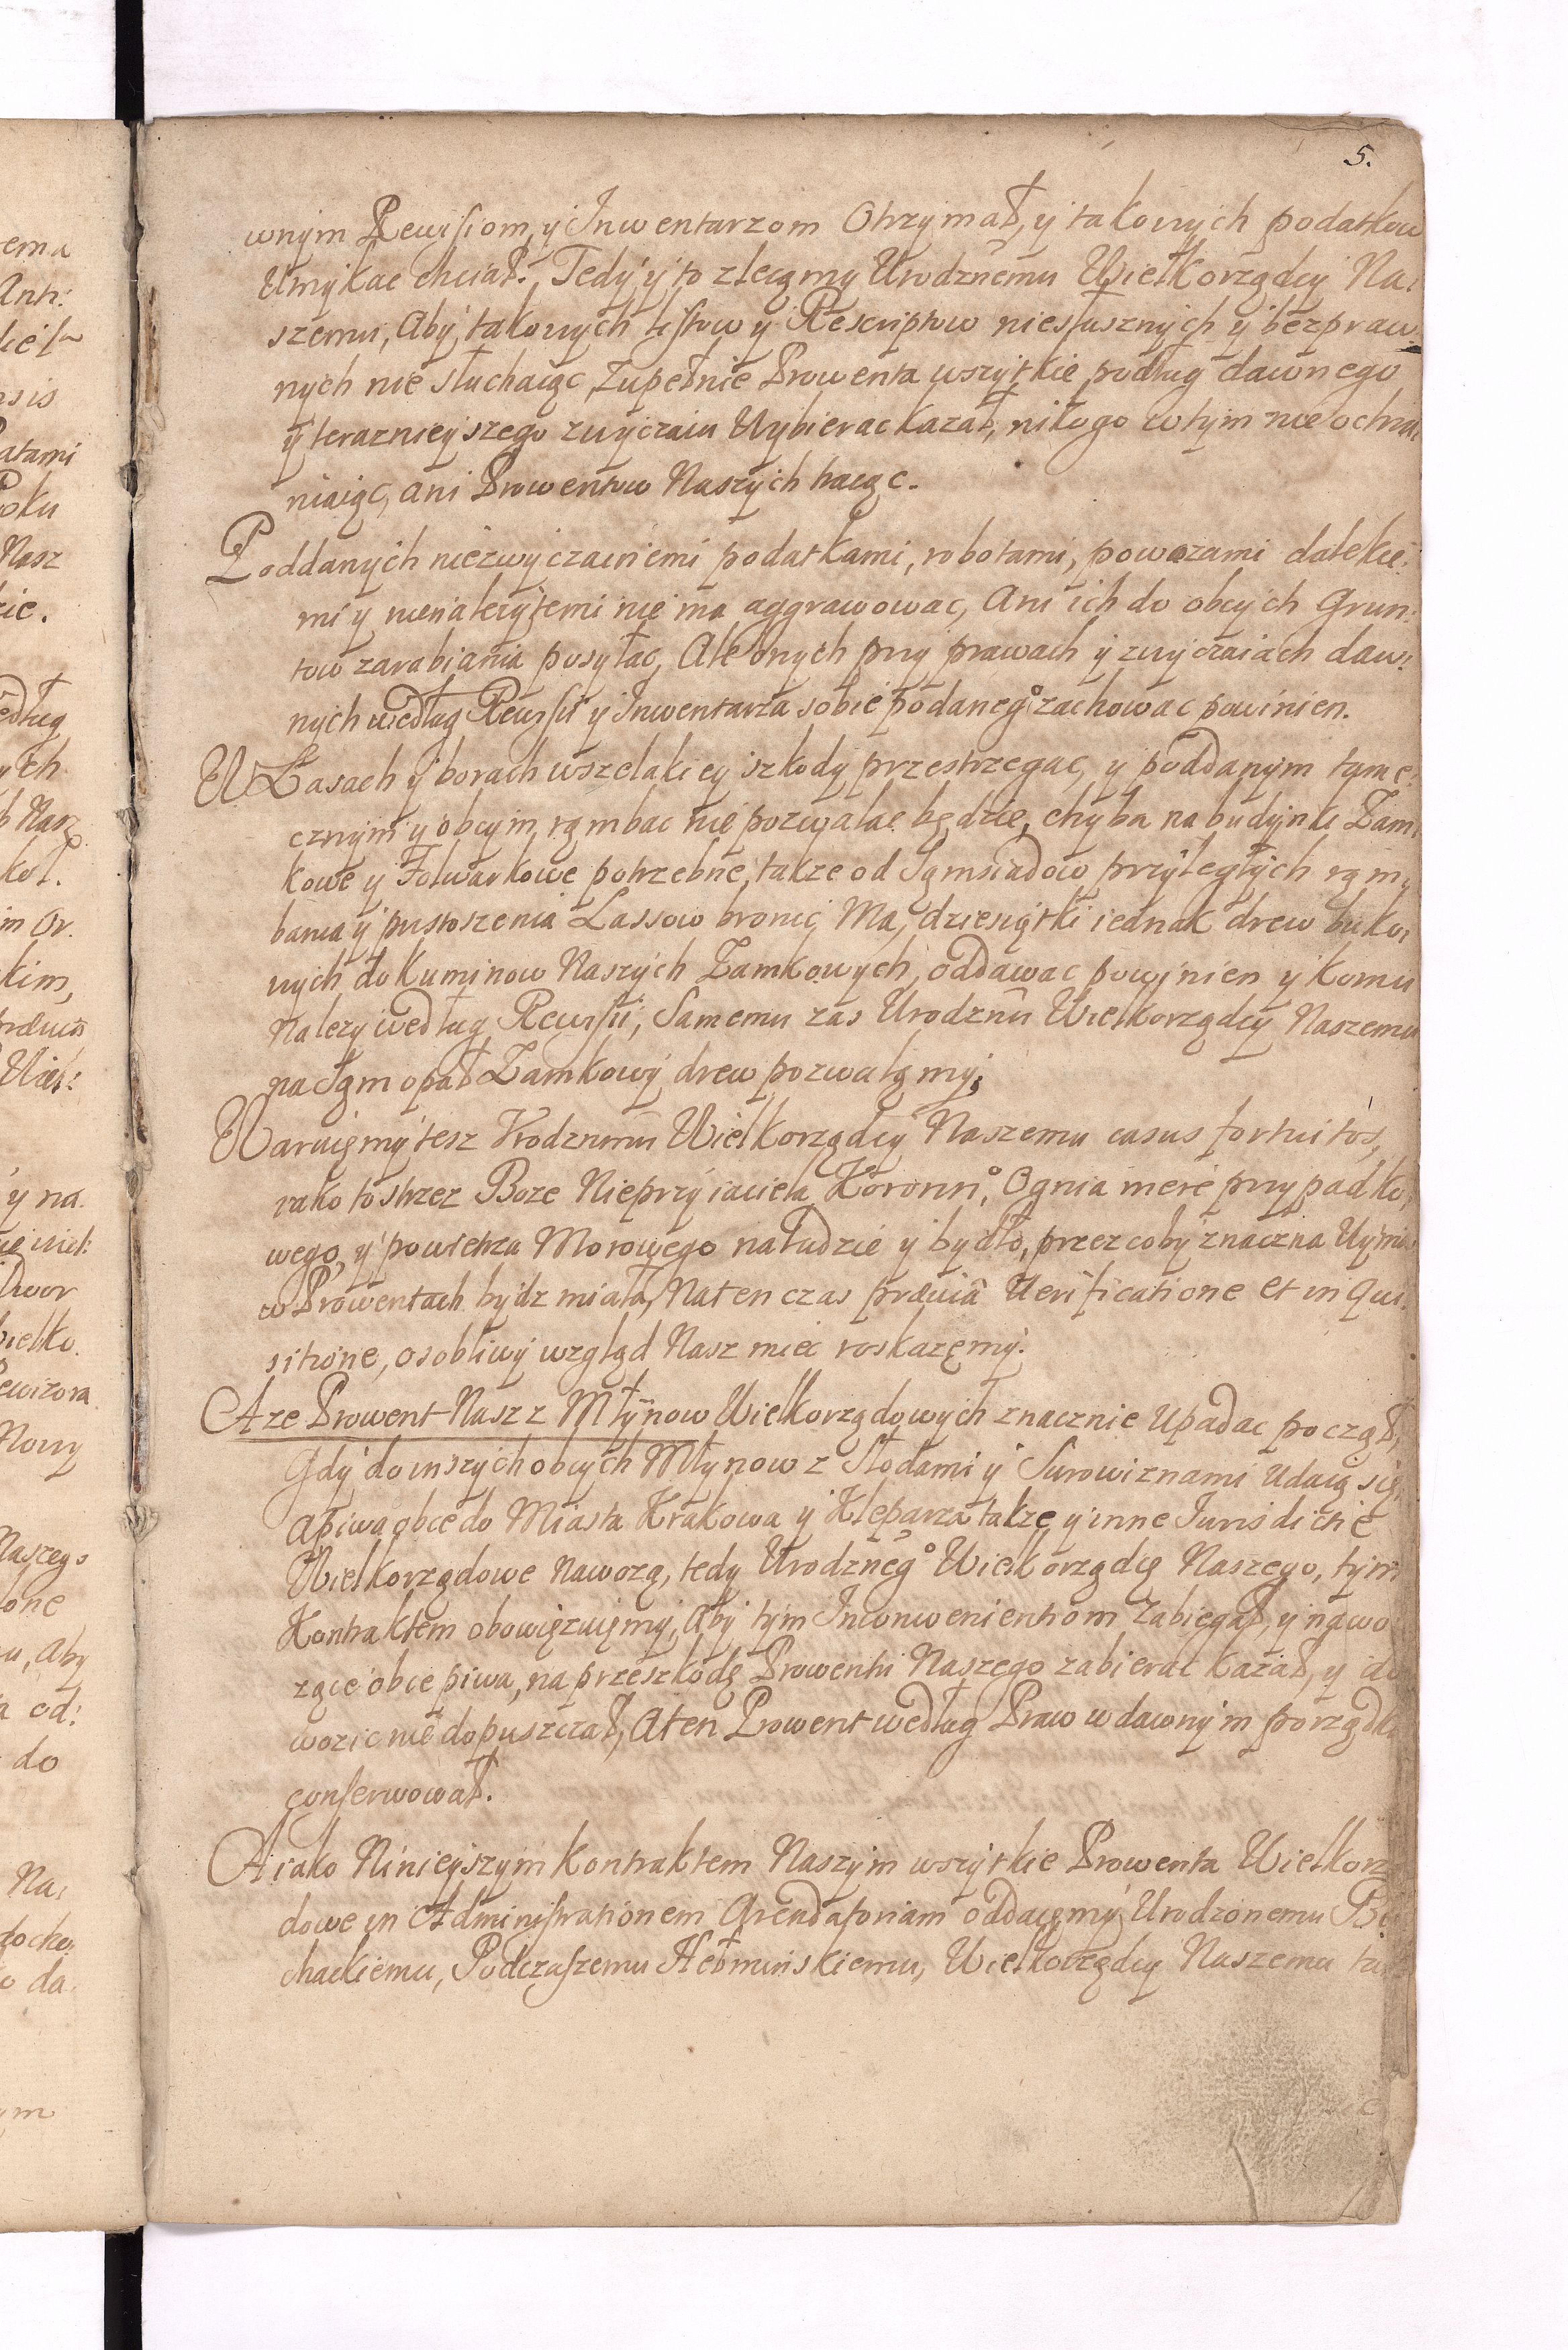 5.
wnym Rewisiom, y Inwentarzom Otrzymał, y takowych podatkow
Umykac chciał. Tedy y to zlecamy Urodznemu Wielkorządcy Na:
szemu, Aby takowych listow y Rescriptow niesłusznych y bezpraw:
nych nie słuchaiąc, Zupełnie Prowenta wszytkie podług dawnego
y terazniejszego zwyczaiu Wybierac kazał, nikogo w tym nie ochra:
niaiąc, ani Prowentow Naszych tracąc.
Poddanych niezwyczainemi podatkami, robotami, powozami dalekie:
mi y nienależytemi nie ma aggrawowac, Ani ich do obcych Grun:
tow zarabiania posyłac, Ale onych przy prawach y zwyczaiach daw:
nych według Rewisii y Inwentarza sobie podanego zachowac powinien.
W Lasach y borach wszelakiey szkody przestrzegac, y poddanym tame:
cznym y obcym rąmbac nie pozwalac będzie, chyba na budynki Zam:
kowe y Folwarkowe potrzebne, takze od Sąmsiadow przyległych rąm:
bania y pustoszenia Lassow bronic Ma, dziesiątki iednak drew buko:
wych do Kuminow Naszych Zamkowych, oddawac powinien y komu
Nalezy według Rewisii, Samemu zas Urodznu Wielkorządcy Naszemu
na Sąm opał Zamkowy drew pozwalamy;
Waruiemy tesz Urodznmu Wielkorządcy Naszemu casus fortuitos,
iako to strzez Boze Nieprzyiaciela Koronno, Ognia mere przypadko:
wego, y powietrza Morowego na ludzie y bydło, przez coby znaczna Uyma
w Prowentach bydz miała, Na ten czas præviâ Verificatione et inqui:
sitione, osobliwy wzgląd Nasz miec roskazemy.
A ze Prowent Nasz z Młynow Wielkorządowych znacznie Upadac począł,
Gdy do inszych obcych Młynow z Słodami y Surowiznami udaią się,
a piwa obce do Miasta Krakowa y Kleparza takze y inne Jurisdictie
Wielkorządowe nawożą, tedy Urodzneg° Wielkorządcę Naszego, tym
Kontraktem obowięzuiemy, aby tym Inconwenientiom zabiegał, y nawo
zące obce piwa, na przeszkodę Prowentu Naszego zabierac kazał, y do
wozic nie dopuszczał, A ten Prowent według Praw w dawnym porządku
conserwował.
A iako Ninieyszym Kontraktem Naszym wszytkie Prowenta Wielkorz
dowe in Administrationem Arendatoriam oddaiemy Urodzonemu
chackiemu, Podczaszemu Hełminskiemu, Wielkorządcy Naszemu